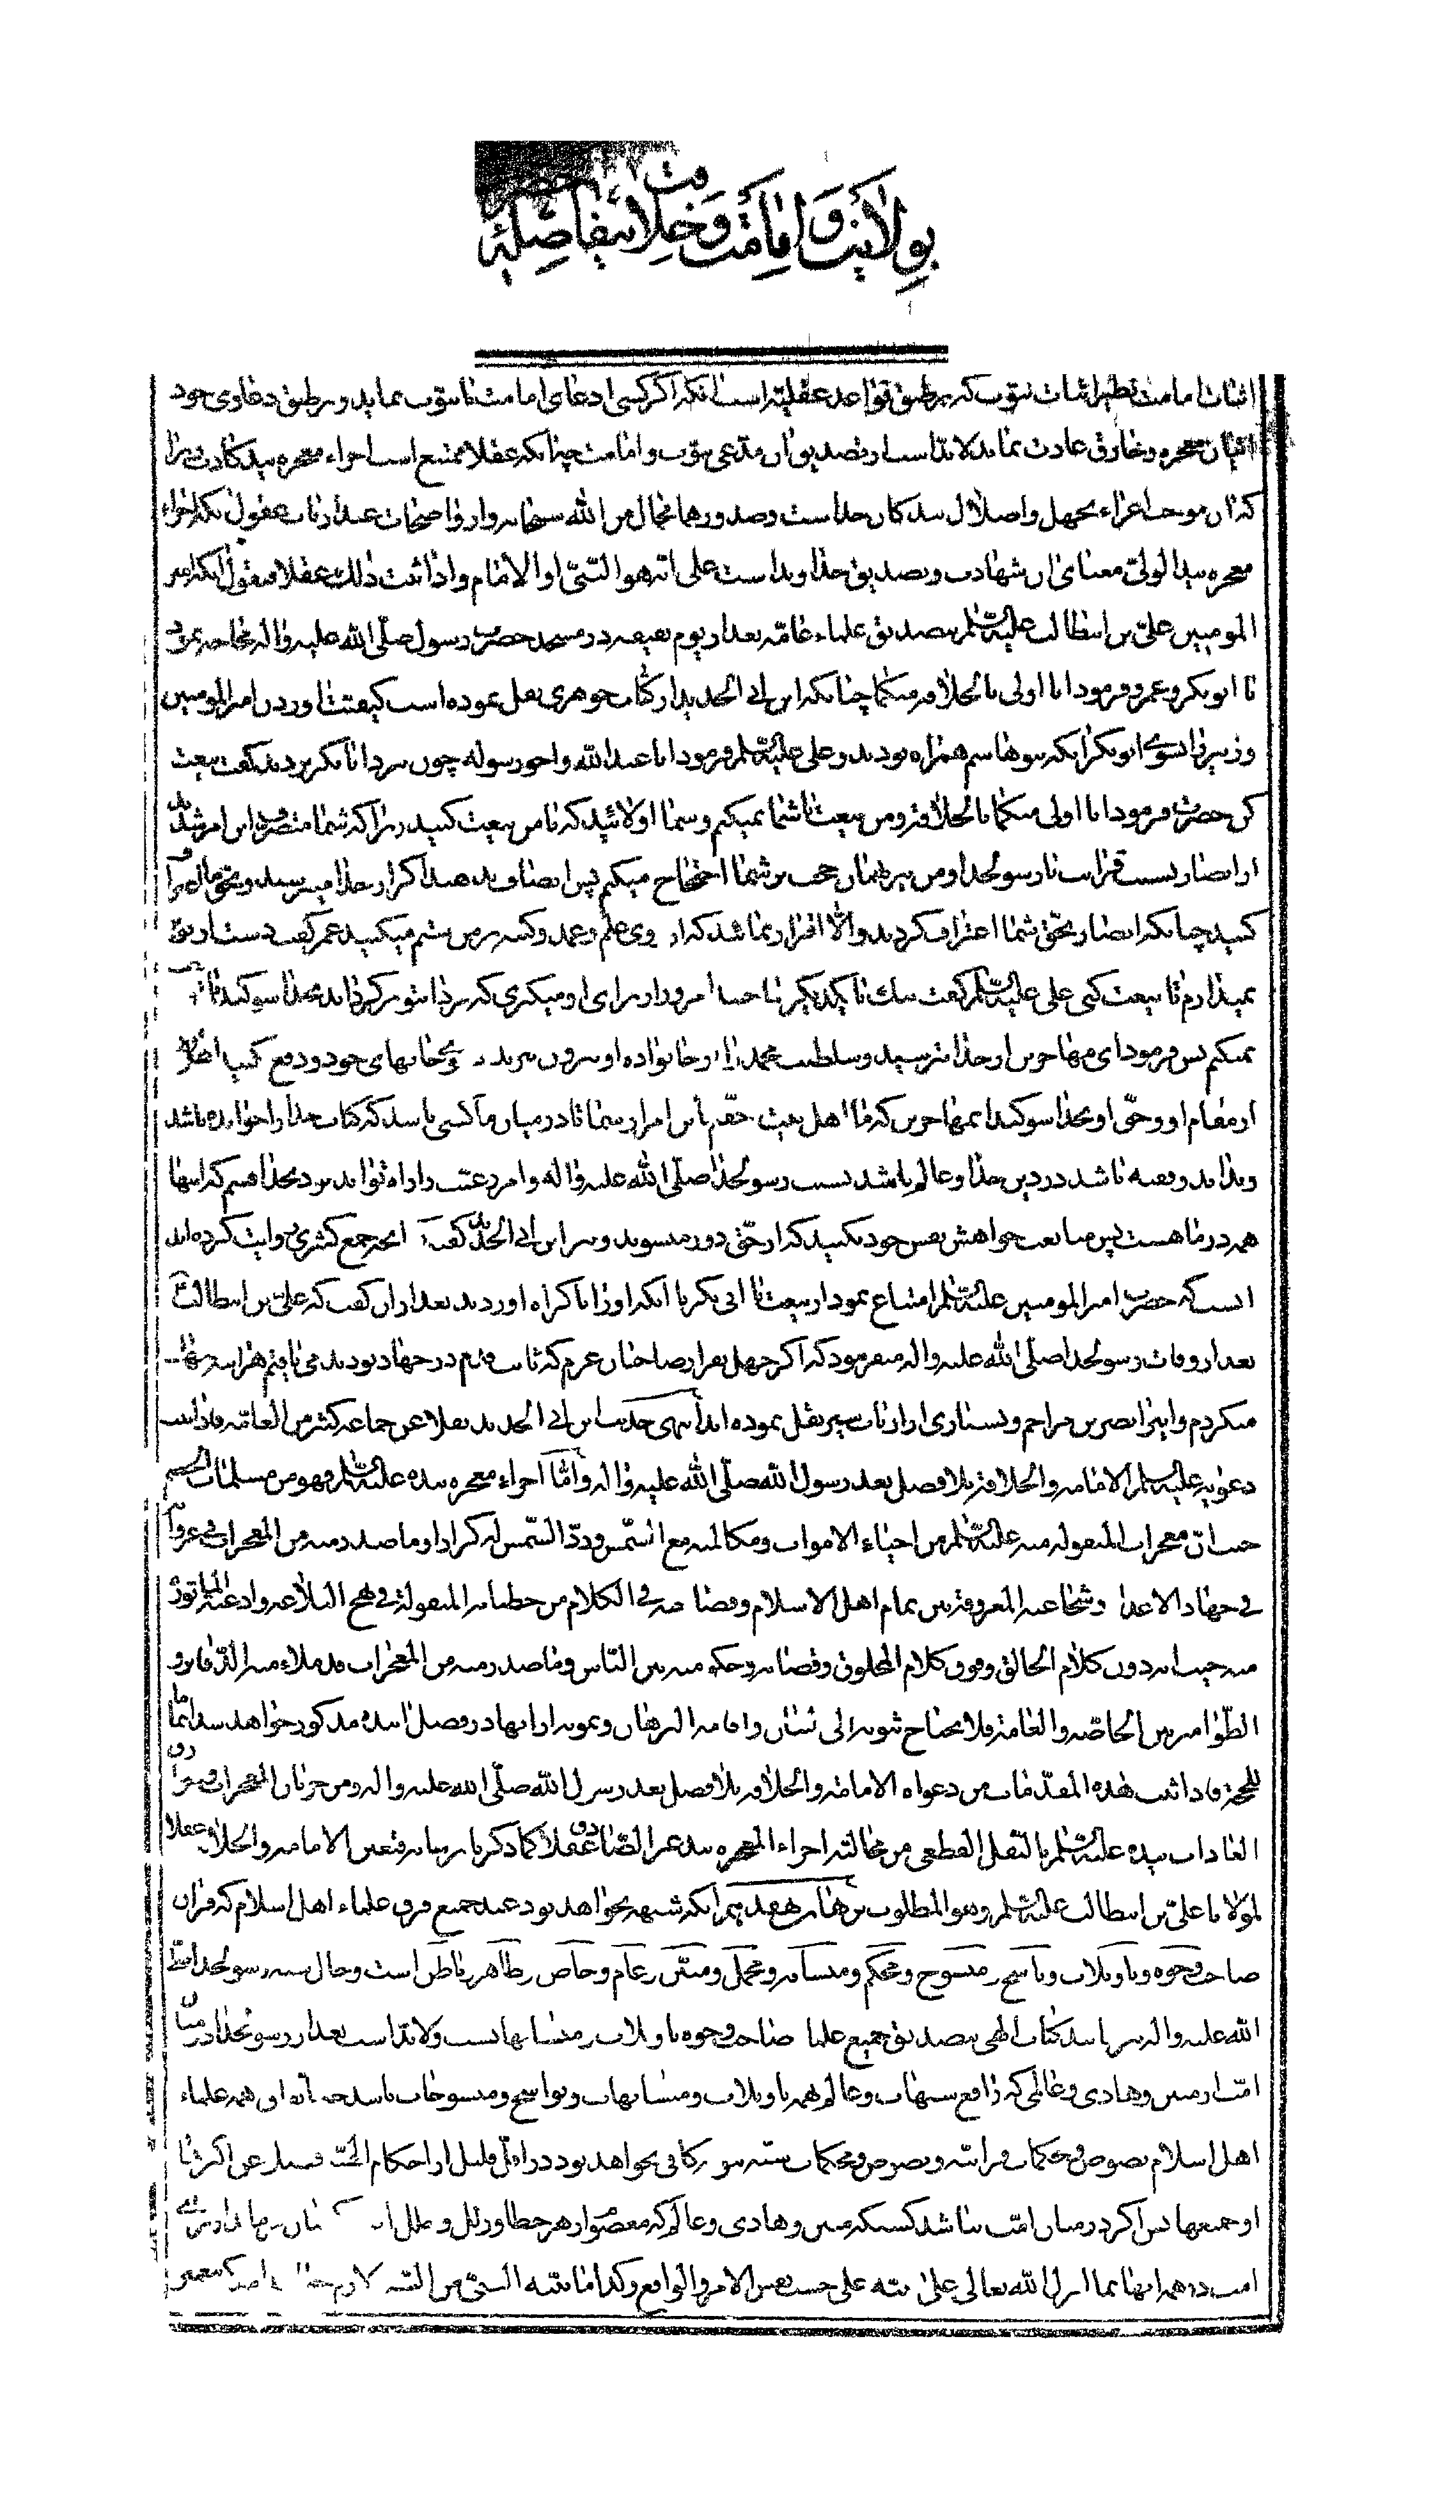 بولایت و امامت و خلافت بلافاصلهٔ
اثبات امامت نظیر اثبات نبوت که بر طبق قواعد عقلیه است آنکه اگر کسی ادعای امامت یا نبوت نماید و بر طبق دعاوی خود
اتیان معجزه و خارق عادت نماید لابد است از تصدیق آن مدعی نبوت و امامت چنانکه عقلا ممتنع است اجراء معجزه بید کاذب زیرا
که آن موجب اغراء بجهل و اضلال بندگان خداست و صدورها محال من الله سبحانه و از واضحات عند ارباب عقول آنکه اجراء
معجزه بید الولی معنای آن شهادت و تصدیق خداوند است علی انه هو النبی او الامام و اذا ثبت ذلک عقلا فنقول آنکه امیر
المومنین علی بن ابیطالب علیه السلام بتصدیق علماء عامه بعد از یوم سقیفه در مسجد حضرت رسول صلی الله علیه و اله محاجه نمود
با ابوبکر و عمر و فرمود انا اولی بالخلافة منکما چنانکه ابن ابی الحدید از کتاب جوهری نقل نموده است کیفیت اوردن امیر المومنین
و زبیر را بسوی ابوبکر آنکه بنو هاشم همراه بودند و علی علیه السلام فرمود انا عبد الله و اخو رسوله چون نزد ابابکر بردند گفت بیعت
کن حضرت فرمود انا اولی منکما بالخلافة و من بیعت با شما نمیکنم و شما اولائید که با من بیعت کنید زیرا که شما متصرف این امر شدید
از انصار بسبب قرابت با رسولخدا و من نیز بهمان حجت بر شما احتجاج میکنم پس انصاف بدهید اگر از خدا میترسید و بحق ما اقرار
کنید چنانکه انصار بحق شما اعتراف کردند و الا اقرار نماشد که از روی علم و عمد و کینه بر من ستم میکنید عمر گفت دست از تو
نمیدارم تا بیعت کنی علی علیه السلام گفت نیک با یکدیگر ساخته‌اید امروز از برای او میگیری که فردا بتو برگرداند بخدا سوگند بیعت
نمیکنم پس فرمود ای مهاجرین از خدا بترسید و سلطنت محمد را از خانواده او بیرون مبرید و بخانهای خود و دفع مکنید اهل او را
از مقام او و حق او بخدا سوگند ای مهاجرین که ما اهل بیت احقیم باین امر از شما تا در میان ما کسی باشد که کتاب خدا را خوانده باشد
و بداند و فقیه باشد در دین خدا و عالم باشد بسنت رسولخدا صلی الله علیه و اله و امر رعیت را راه تواند برد بخدا قسم که اینها
همه در ما هست پس متابعت خواهش نفس خود مکنید که از حق دور میشوید و نیز ابن ابی الحدید گفت آنچه جمع کثیری روایت کرده‌اند
اینست که حضرت امیر المومنین علیه السلام امتناع نمود از بیعت با ابی بکر تا آنکه او را باکراه اوردند بعد از آن گفت که علی بن ابیطالب
بعد از وفات رسولخدا صلی الله علیه و اله میفرمود که اگر چهل نفر از صاحبان عزم که ثابت قدم در جهاد بودند می‌یافتم هر اینه
میکردم و اینرا نصر بن مزاحم و بسیاری از ارباب سیر نقل نموده‌اند انتهی حدیث ابن ابی الحدید نقلا عن جماعة کثیر من العامه فاذا ثبت
دعویه علیه السلام الامامه و الخلافة بلا فصل بعد رسول الله صلی الله علیه و اله و اما اجراء معجزه بیده علیه السلام فهو من مسلمات الخصم
حیث ان معجزات المنقوله منه علیه السلام من احیاء الاموات و مکالمته مع الشمس و رد الشمس له کرارا و ما صدر منه من المعجزات فی غزواته
فی جهاد الاعداء و شجاعته المعروفة بین تمام اهل الاسلام و فصاحته فی الکلام من خطبات المنقولة فی نهج البلاغه و ادعیة الماثورة
منه حیث انه دون کلام الخالق و فوق کلام المخلوق و قضائه و حکومته بین الناس و ما صدر منه من المعجزات قد ملاء منه الدفاتر و
الطوامیر بین الخاصه و العامة فلا یحتاج ثبوته الی تبیان و اقامه البرهان و نمونه از انها در فصل اینده مذکور خواهد شد
للمحرز فاذا ثبت هذه المقدمات من دعواه الامامة و الخلافة بلا فصل بعد رسول الله صلی الله علیه و اله و من جریان المعجزات و خوارق
العادات بیده علیه السلام بالنقل القطعی من محالیة اجراء المعجزه بید غیر الصادق عقلا کما ذکر فتعین الامامه و الخلافة عقلا
لمولانا علی بن ابیطالب علیه السلام و هو المطلوب برهان هفدهم آنکه شبهه نخواهد بود عند جمیع فرق علماء اهل اسلام که قران
صاحب وجوه و تاویلات و ناسخ و منسوخ و محکم و متشابه و مجمل و مبین و عام و خاص و ظاهر و باطن است و حال سنت رسولخدا صلی
الله علیه و اله نیز مانند کتاب الهی بتصدیق جمیع علما صاحب وجوه تاویلات و متشابهاتست و لابد است بعد از رسولخدا در میان
امت از مبین و هادی و عالمی که رافع شبهات و عالم بهمه تاویلات و متشابهات و نواسخ و منسوخات باشد همه علماء
اهل اسلام نصوص و محکمات قرانیه و نصوص و محکمات سنت نبویه کافی نخواهد بود در اقل قلیل از احکام الهیه فضلا عن اکثرها
او جمیعها پس اگر در میان امت نباشد کسیکه مبین و هادی و عالم که معصوم از هر خطا و زلل و خلل
امت در همه انها بما انزل الله تعالی علی نبیه علی حسب نفس الامر و الواقع و کذا ما بینه النبی من السنه